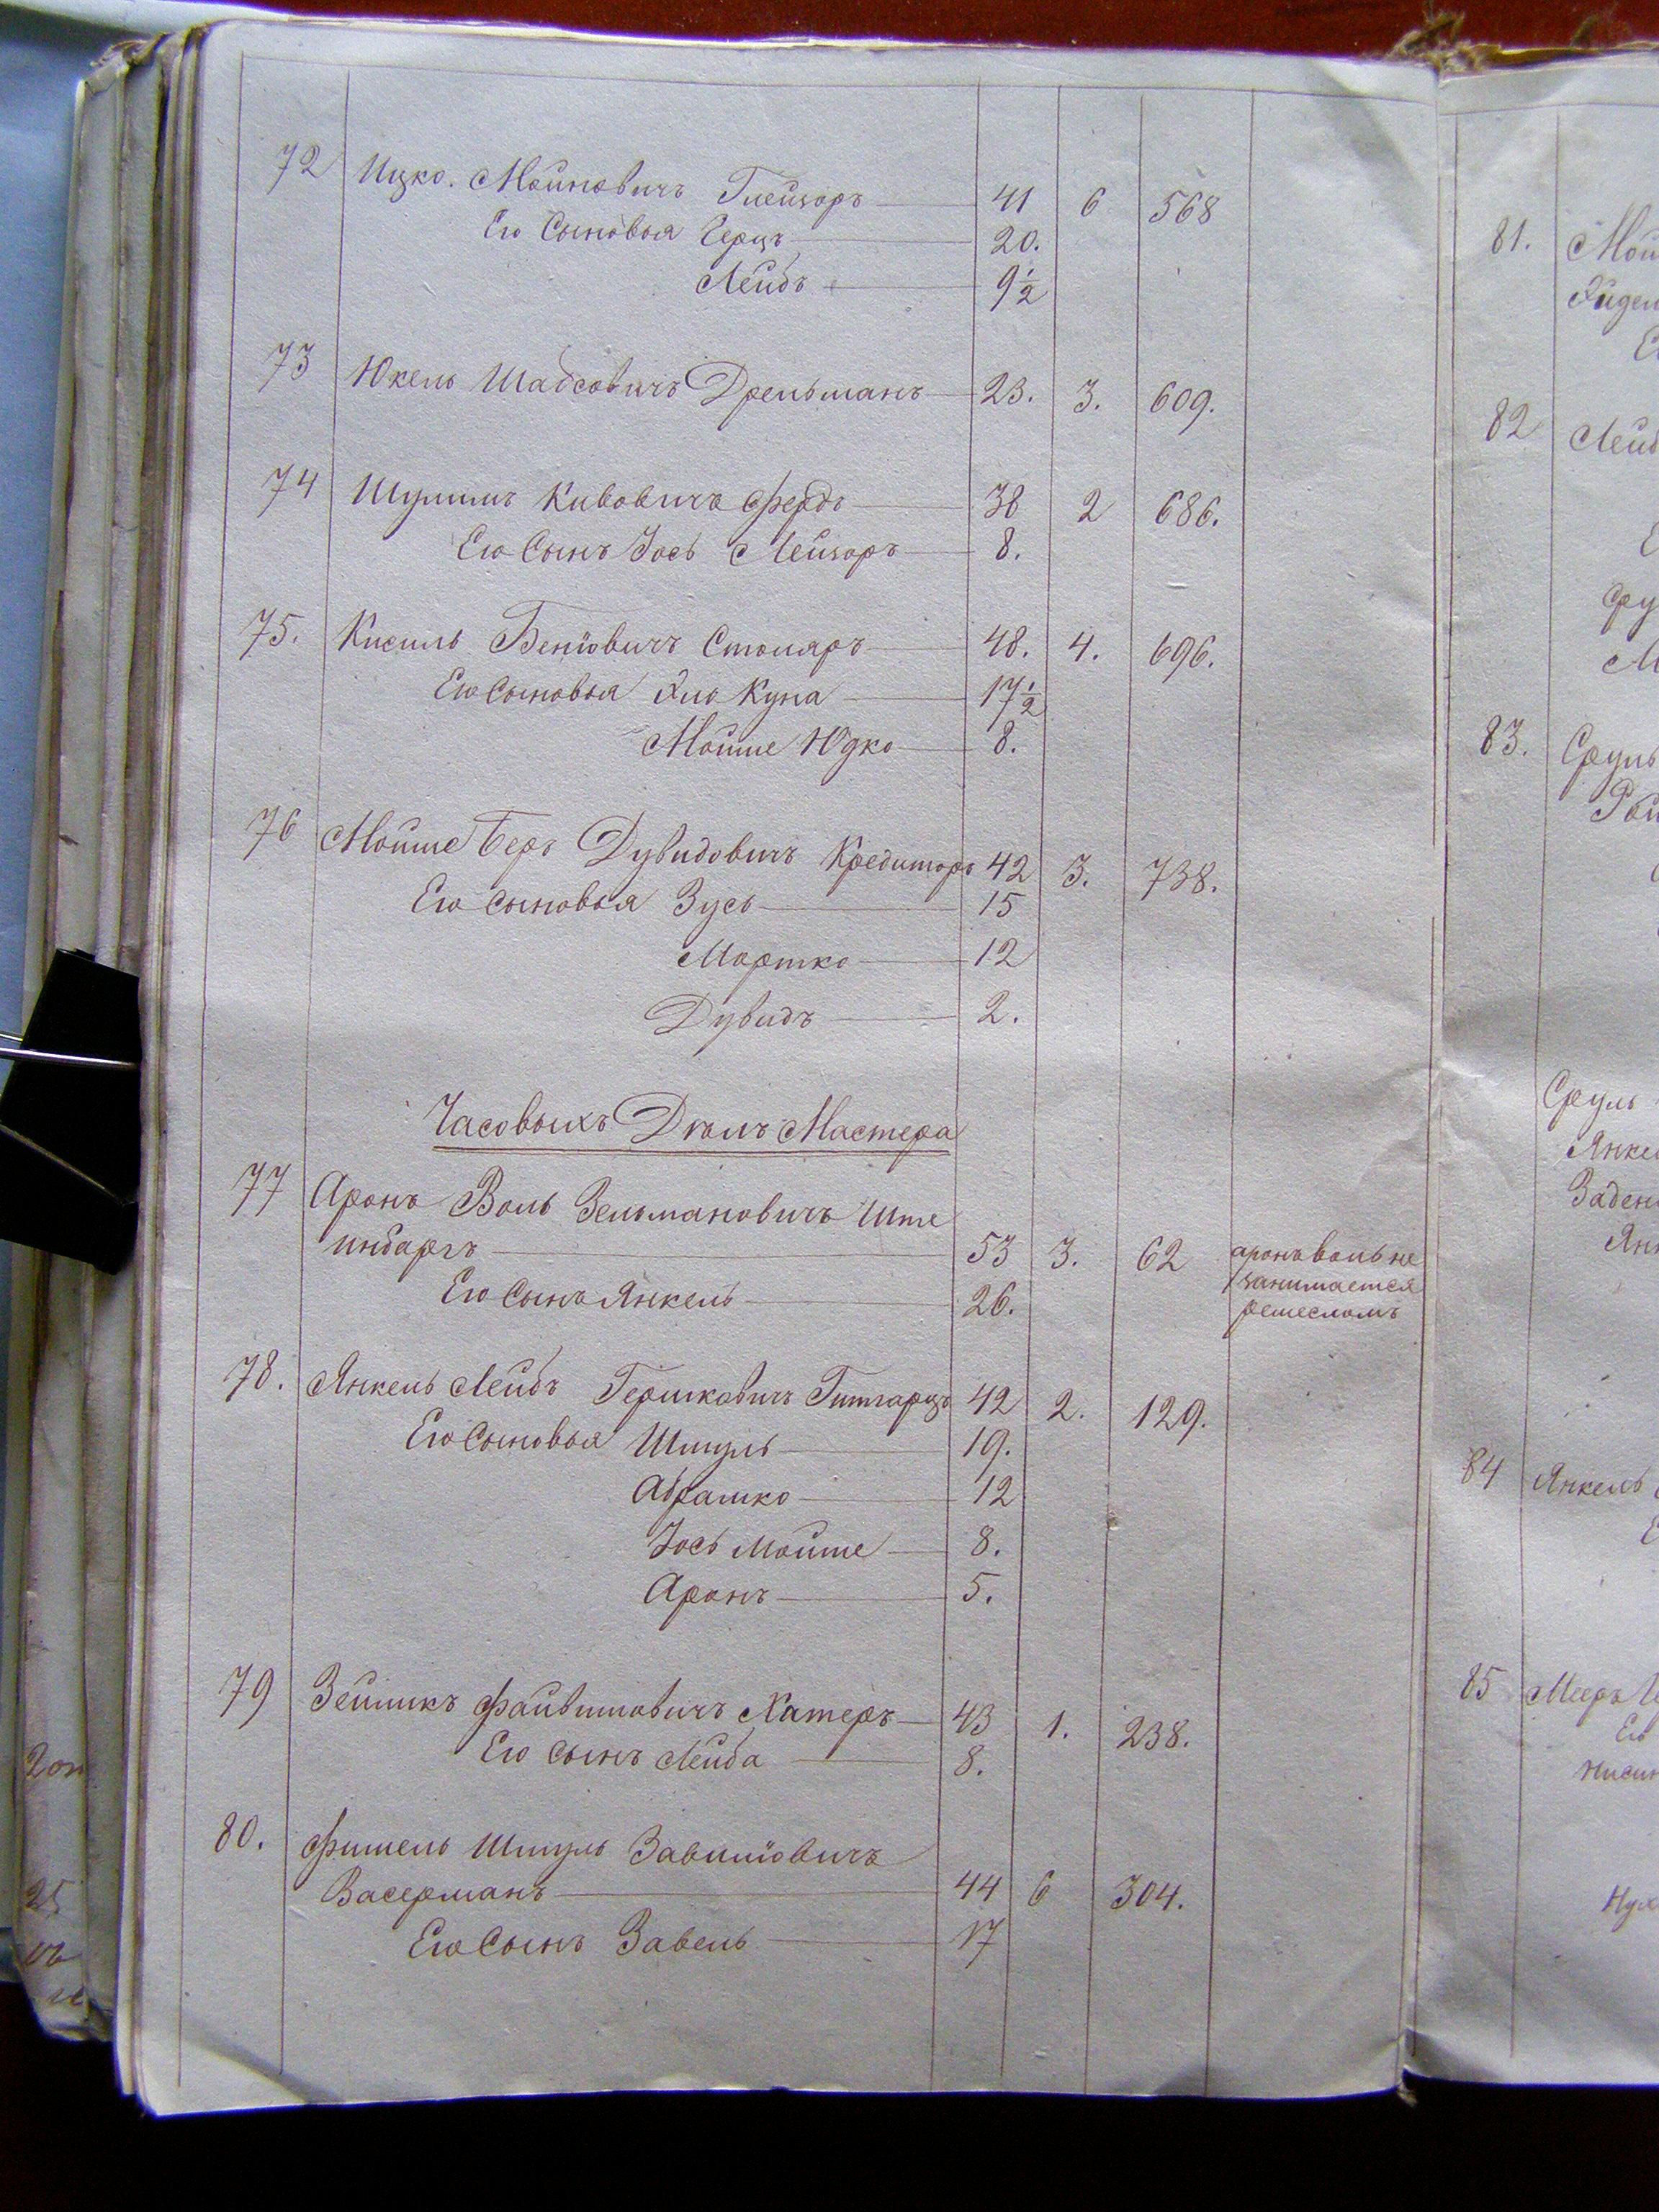 72 Ицко. Мошковичъ Глейзоръ 41 6 568
Его Сыновья Герцъ 20.
Лейбъ 9 1/2
73 Юкель Шабсовичъ Дрельманъ 23. 3. 609.
74 Шулимъ Кивовичъ Фердъ 38 2 686.
Его Сынъ Іось Лейзоръ 8.
75. Кисиль Беніовичъ Столяръ 48. 4. 696.
Его Сыновья Эло Куна 17 1/2
Мойше Юдко 8.
76 Мойше Беръ Дувидовичъ Кредиторъ 42 3. 738.
Его Сыновья Зусь 15
Мортко 12
Дувидъ 2.
Часовыхъ Делъ Мастера
77 Аронъ Воль Зельмановичъ Ште
инбаргъ 53 3. 62 аронъ воль не
Его Сынъ Янкель 26. занимается
ремесломъ
78. Янкель Лейбъ Гершковичъ Гитгарцъ 42 2. 129.
Его Сыновья Шмуль 19.
Абрамко 12
Іось Мойше 8.
Аронъ 5.
79 Зейликъ Файвишовичъ Хатеръ 43 1. 238.
Его Сынъ Лейба 8.
80. Фишель Шмуль Завиліовичъ
Васерманъ 44 6 304.
Его Сынъ Завель 17
81. Мош
82 Лейб
83. Сруль
Сруль
Янкел
84 Янкель
85 Мееръ
Его